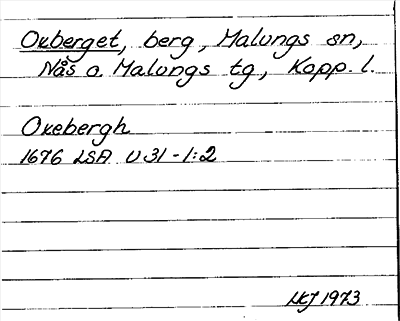 Oxberget, berg, Malungs sn,
Nås o. Malungs tg, Kopp. l.
Oxebergh
1676 LSA U 31-1:2
1973